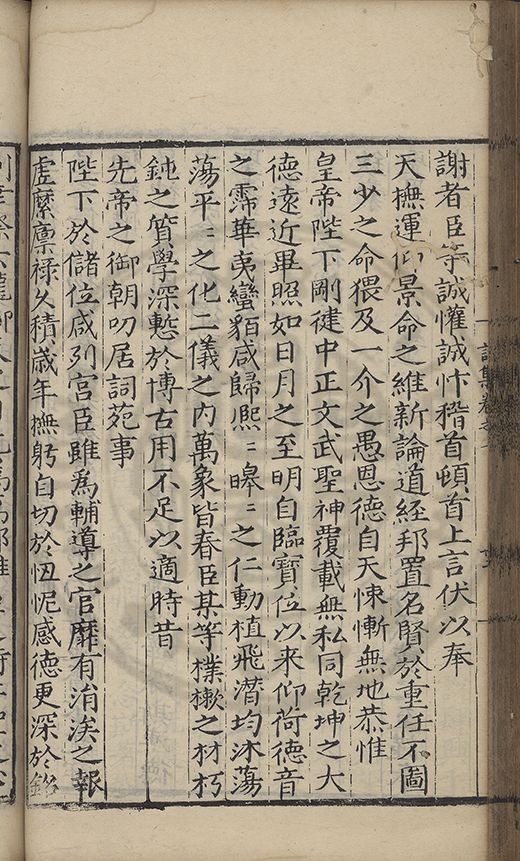 謝者臣等誠懽誠忭稽首頓首上言伏以奉
天撫運仰景命之維新論道經邦置名賢於重任不圖
三少之命猥及一介之愚恩德自天悚慚無地恭惟
皇帝陛下剛健中正文武聖神覆載無私同乾坤之大
德遠近畢照如日月之至明自臨寶位以来仰荷德音
之霈華夷蠻貊咸歸熙〻皞〻之仁動植飛潛均沐蕩
蕩平〻之化二儀之内萬象皆春臣某等樸樕之材朽
鈍之質學深慙於博古用不足以適時昔
先帝之御朝叨居詞苑事
陛下於儲位咸列宫臣雖為輔導之官靡有涓涘之報
虗縻禀禄久積歲年撫躬自切於忸怩感德更深於銘